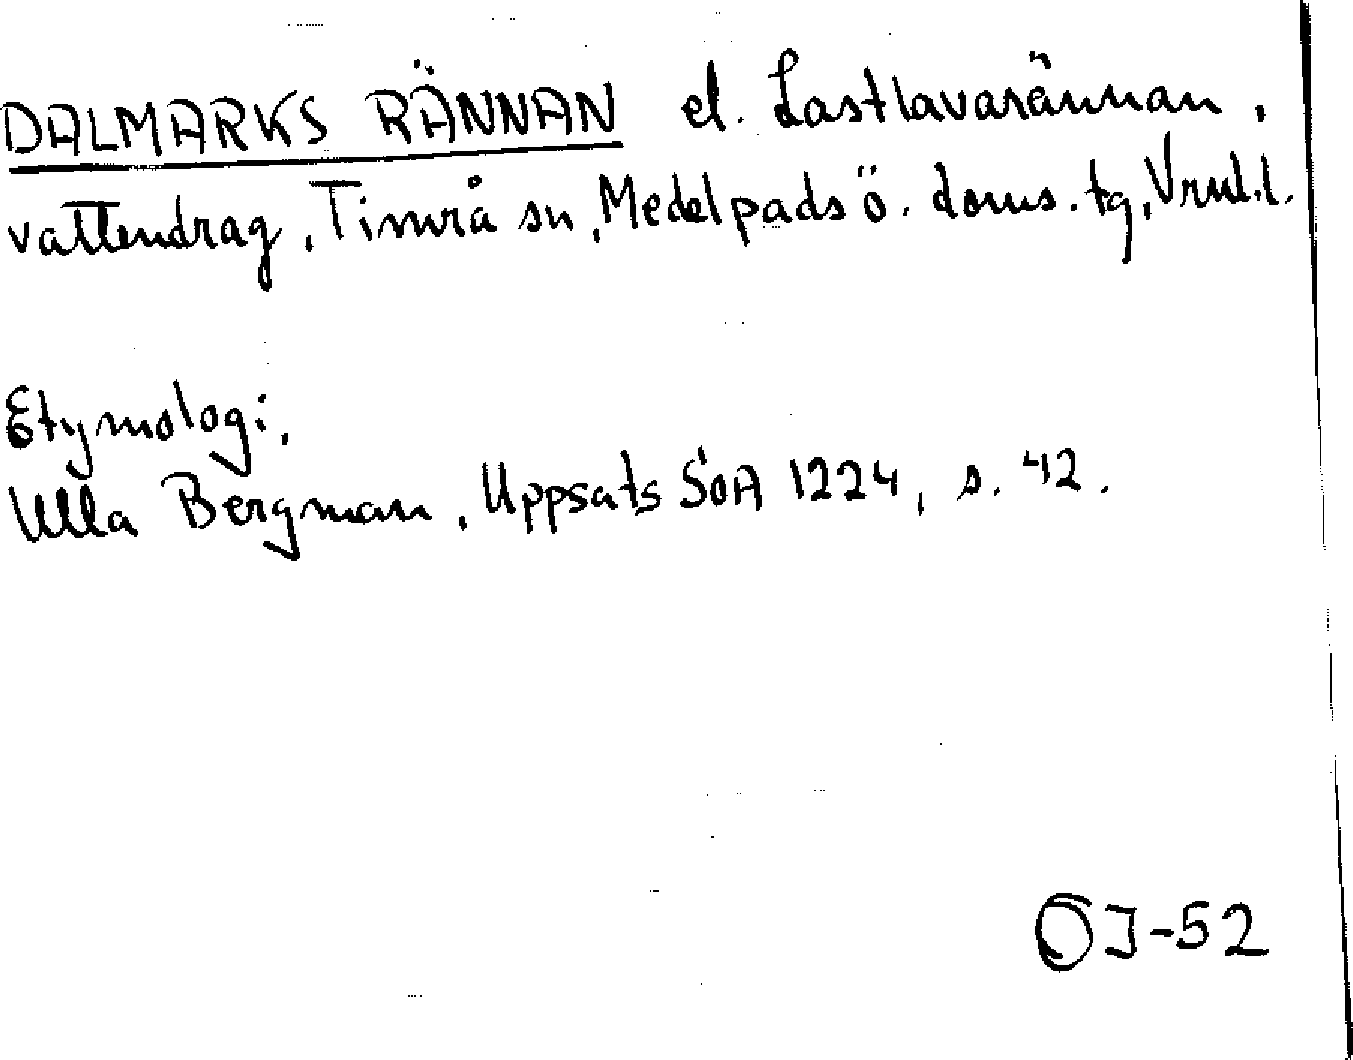 DALMARKS RÄNNAN el. Lastlavarännan,
vattendrag, Timrå sn, Medelpads ö. doms. tg, Vrnl.l.
Etymologi.
Ulla Bergman, Uppsats SOA 1224, s. 42.
OJ-52